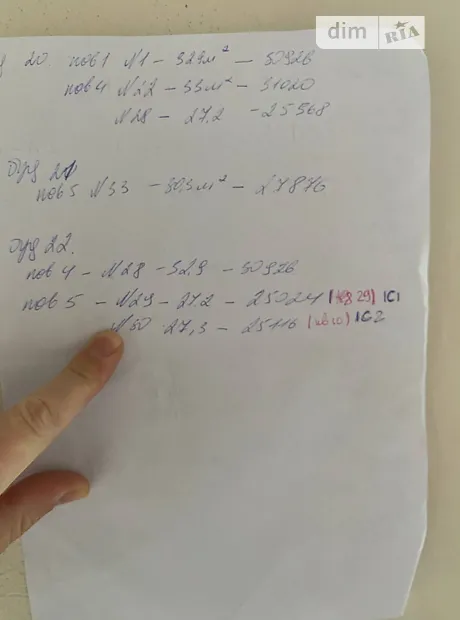 dim RIA
20. пов1 №1 – 32,9 м² – 30926
пов4 №22 – 33 м² – 31020
№28 – 27,2 – 25568
буд 21
пов5 №33 – 30,3 м² – 27876
буд 22.
пов 4 – №28 – 32,9 – 30926
пов 5 – №29 – 27,2 – 25024 (кв 29) ІС1
№30 27,3 – 25116 ІС2